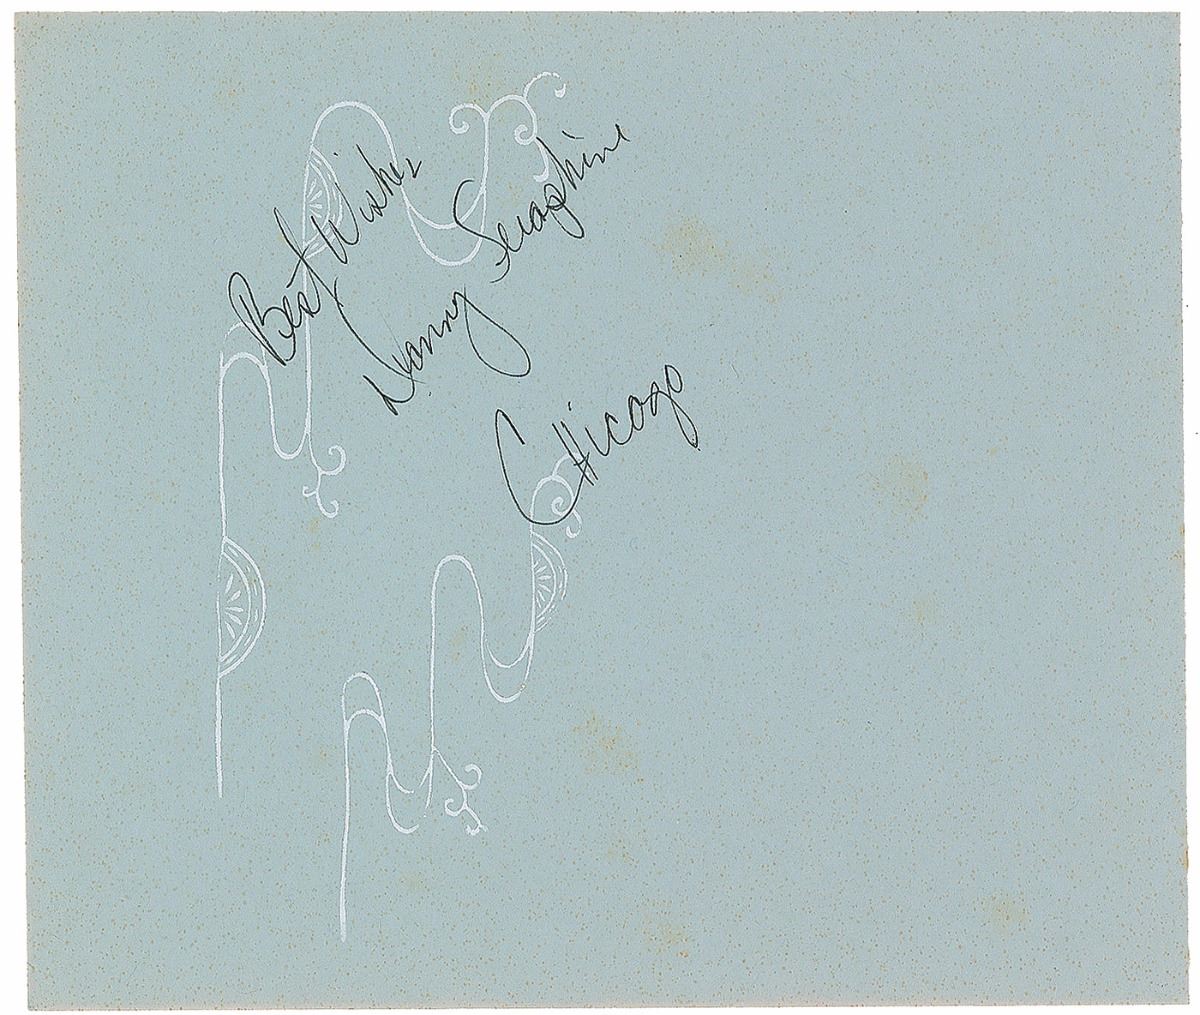 Best Wishes
Danny Seraphine
CHicago